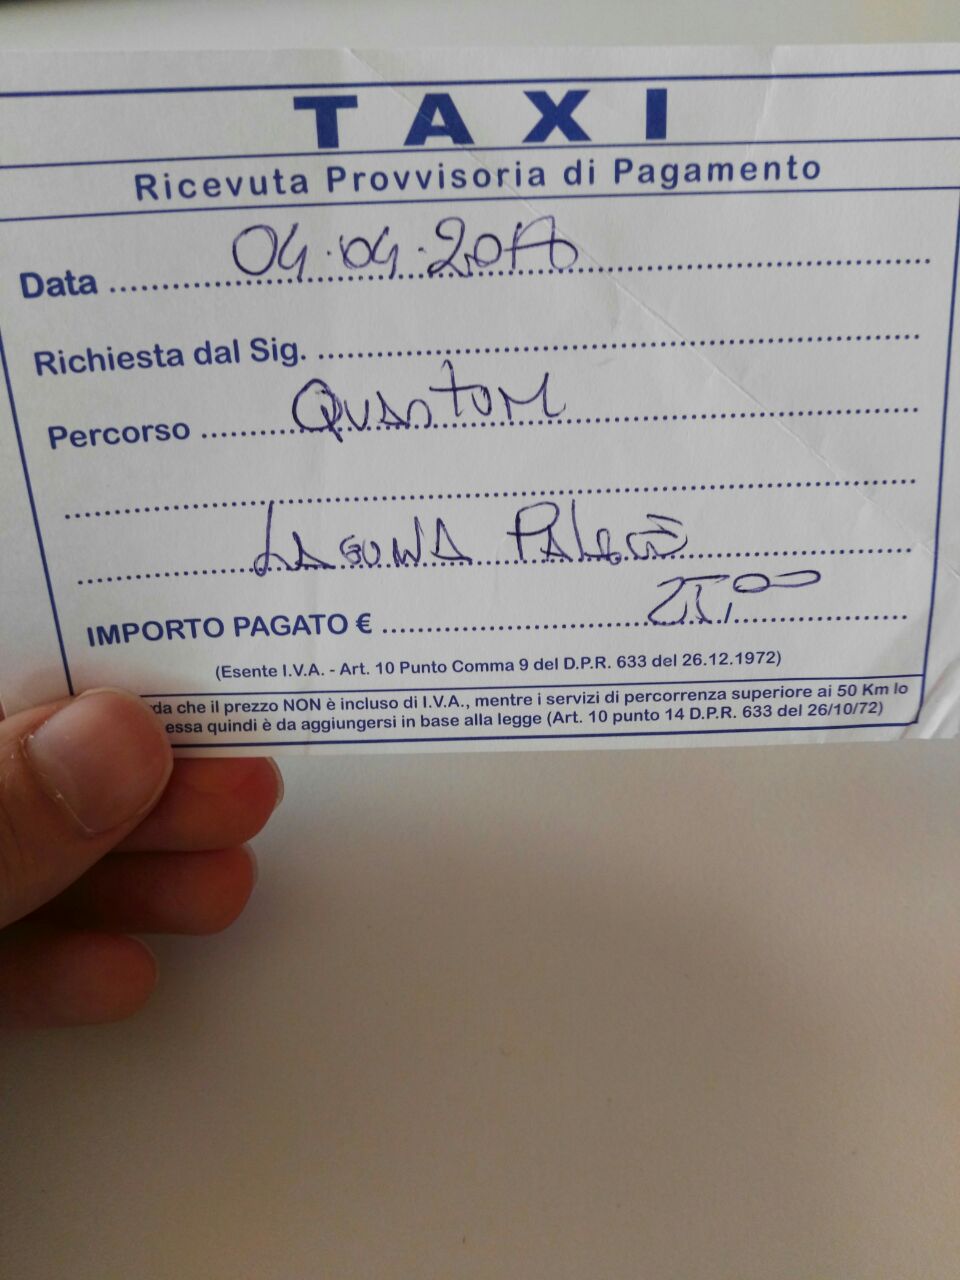 TAXI
Ricevuta Provvisoria di Pagamento
Data 04.04.2018
Richiesta dal Sig.
Percorso QUANTUM
LAGUNA PALACE
IMPORTO PAGATO € 25,00
(Esente I.V.A. - Art. 10 Punto Comma 9 del D.P.R. 633 del 26.12.1972)
da che il prezzo NON è incluso di I.V.A., mentre i servizi di percorrenza superiore ai 50 Km lo
essa quindi è da aggiungersi in base alla legge (Art. 10 punto 14 D.P.R. 633 del 26/10/72)